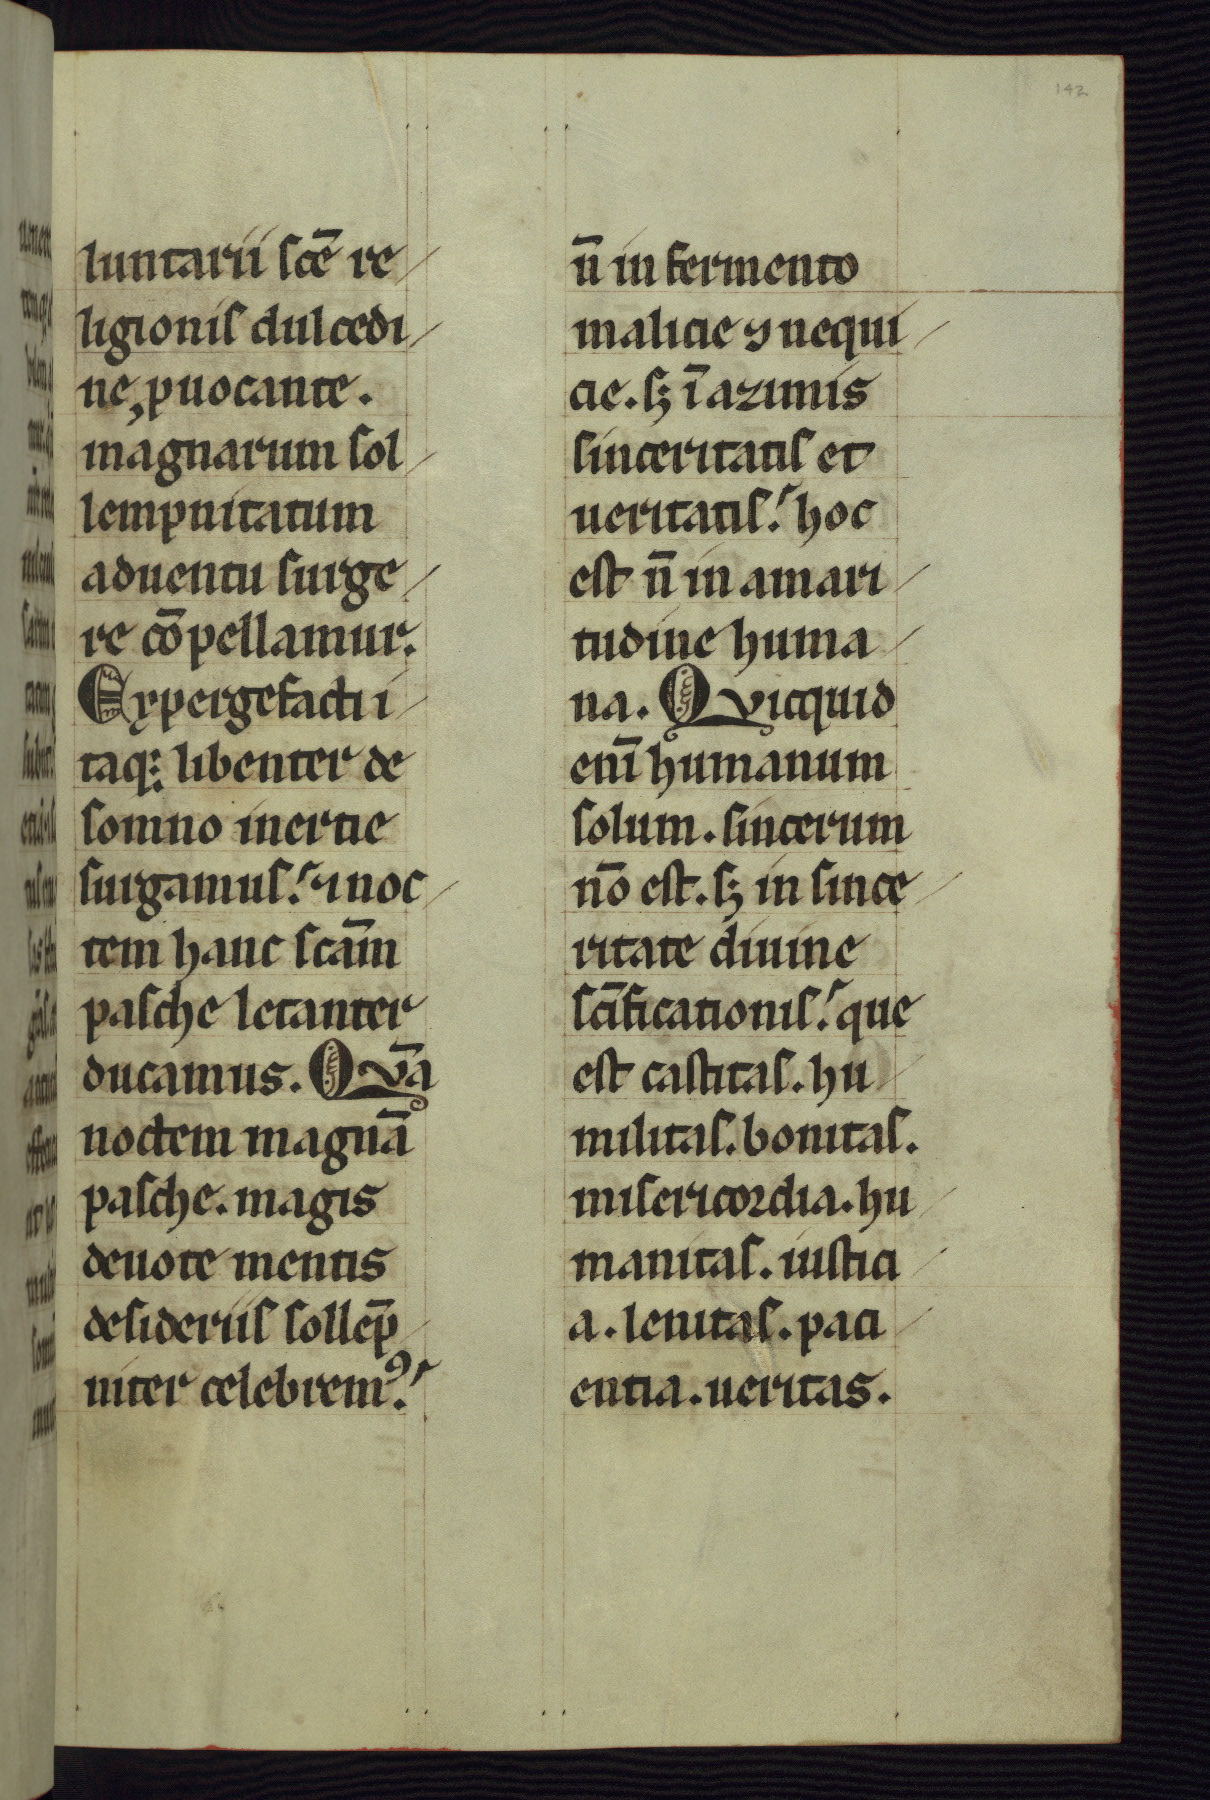 142
luntarii sc̄e re
ligionis dulcedi
ne, ꝓuocante.
magnarum sol
lempnitatum
aduentu surge
re cōpellamur.
Expergefacti i
taq; libenter de
somno inertie
surgamus. ⁊ noc
tem hanc sc̄am
pasche letanter
ducamus. Qvā
noctem magnā
pasche. magis
deuote mentis
desideriis sollēp
niter celebremꝰ.
n̄ in fermento
malicie ⁊ nequi
cie. sꝫ ī azimis
sinceritatis et
ueritatis. hoc
est n̄ in amari
tudine huma
na. Qvicquid
enī humanum
solum. sincerum
nō est. sꝫ in since
ritate diuine
sc̄ificationis. que
est castitas. hu
militas. bonitas.
misericordia. hu
manitas. iustici
a. lenitas. paci
entia. ueritas.